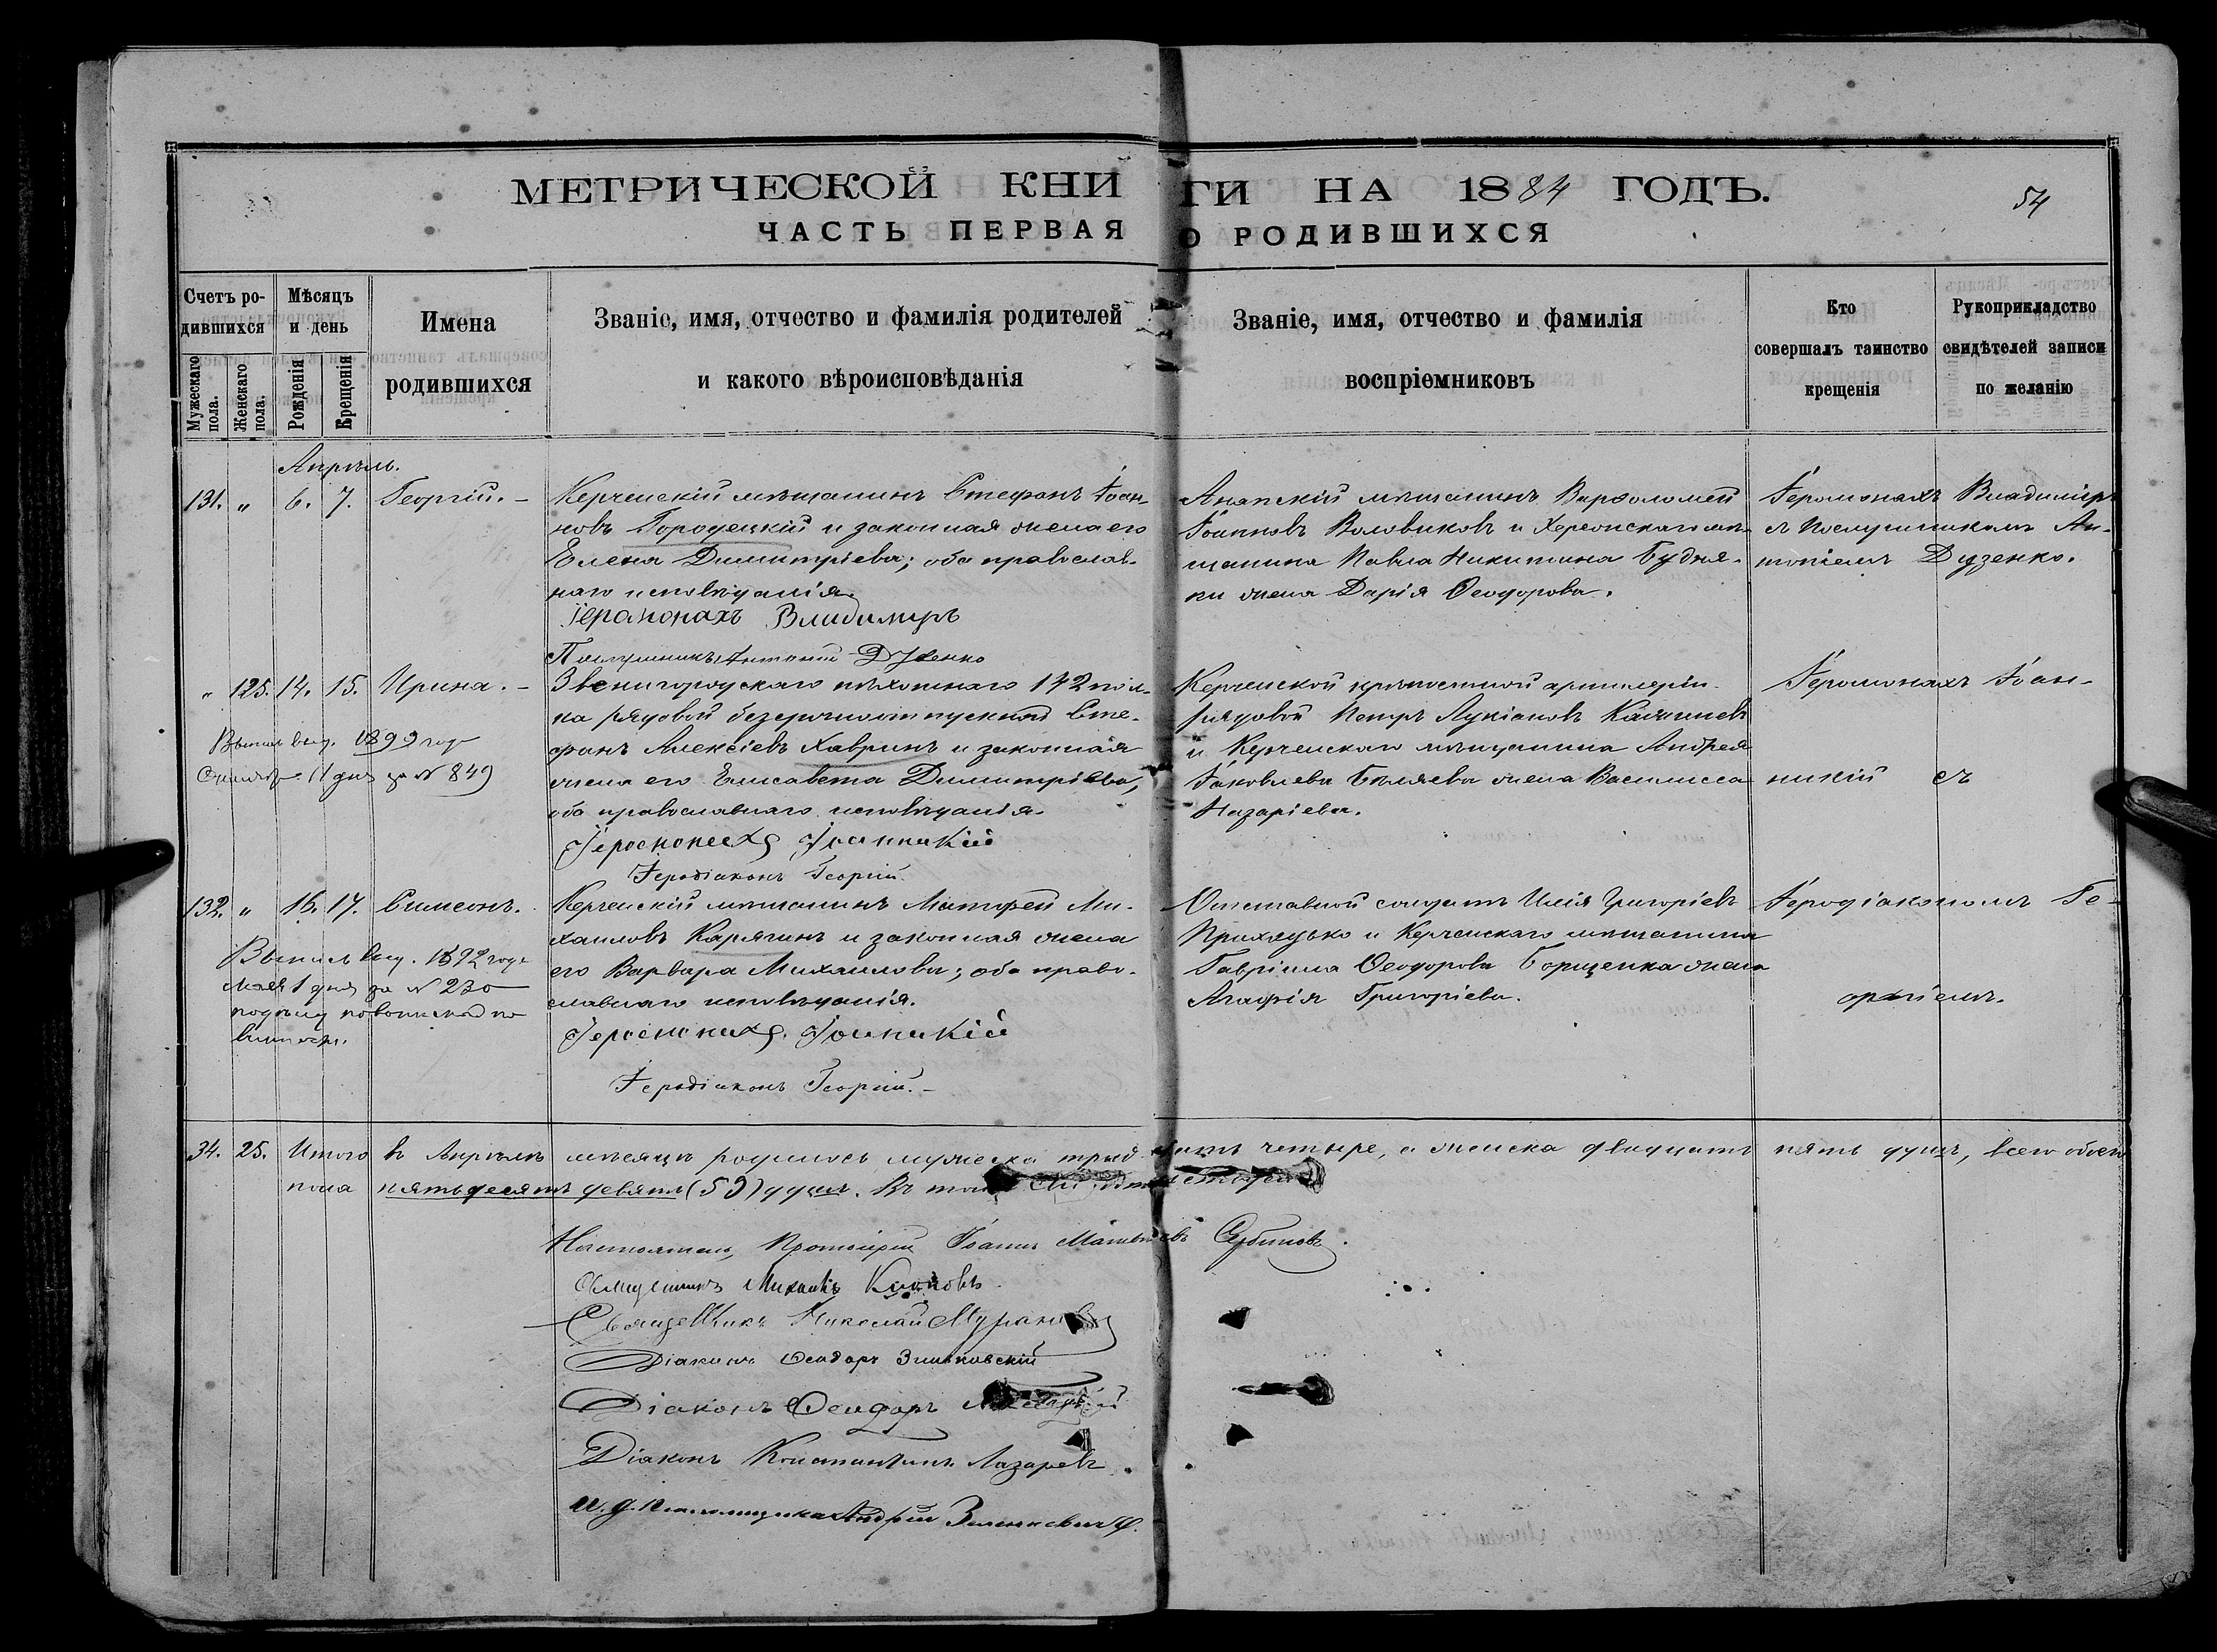 МЕТРИЧЕСКОЙ КНИГИ НА 1884 ГОДЪ.
54
ЧАСТЬ ПЕРВАЯ О РОДИВШИХСЯ
Счетъ родившихся
Мужескаго пола.
Женскаго пола.
Мѣсяцъ и день
Рожденія
Крещенія
Имена родившихся
Званіе, имя, отчество и фамилія родителей
и какого вѣроисповѣданія
Званіе, имя, отчество и фамилія
воспріемниковъ
Кто
совершалъ таинство
крещенія
Рукоприкладство
свидѣтелей записи
по желанію
Апрѣль.
131. " 6. 7. Георгій. –
Керченскій мѣщанинъ Стефанъ Іоан-
новъ Городецкій и законная жена его
Елена Димитріева; оба православ-
наго исповѣданія.
Іеромонахъ Владимиръ
Послушникъ Антоній Дузенко
Анапскій мѣщанинъ Варфоломей
Іоанновъ Воловиковъ и Херсонскаго мѣ-
щанина Павла Никитина Будня-
ки жена Дарія Ѳеодорова.
Іеромонахъ Владиміръ
съ послушникомъ Ан-
тоніемъ Дузенко.
" 125. 14. 15. Ирина. –
Звенигородскаго пѣхотнаго 142 пол-
ка рядовой безсрочноотпускной Сте-
фанъ Алексіевъ Хавринъ и законная
жена его Елисавета Димитріева,
оба православнаго исповѣданія.
Іеромонахъ Іоанникій
Іеродіаконъ Георгій.
Выпись выд. 1899 года
11 дня за № 849
Керченской крѣпостной артиллеріи
рядовой Петръ Лукіановъ
и Керченскаго мѣщанина Андрея
Іаковлева Бѣляева жена Василисса
Назаріева.
Іеромонахъ Іоан-
никій съ
132. " 16. 17. Симеонъ.
Керченскій мѣщанинъ Матфей Ми-
хаиловъ Карягинъ и законная жена
его Варвара Михаилова; оба право-
славнаго исповѣданія.
Іеромонахъ Іоанникій
Іеродіаконъ Георгій. –
Выпись выд. 1892 года
мая 1 дня за № 230
по воинской по
винности.
Отставной солдатъ Илія Григоріевъ
Приходько и Керченскаго мѣщанина
Гавріила Ѳеодорова Борщенка жена
Агафія Григоріева.
Іеродіакономъ Ге-
оргіемъ.
34. 25. Итого въ Апрѣлѣ мѣсяцѣ родилось мужеска тридцать четыре, а женска двадцать пять душъ, всего обоего
пола пятьдесятъ девять (59) душъ. Въ томъ
Настоятель, Протоіерей Іоаннъ Матвѣевъ Сербиновъ.
Священникъ Михаилъ
Священникъ Николай
Діаконъ Ѳеодоръ Зиньковскій
Діаконъ Ѳеодоръ
Діаконъ Константинъ Лазаревъ.
И. д. псаломщика Андрей Зиленкевичъ.